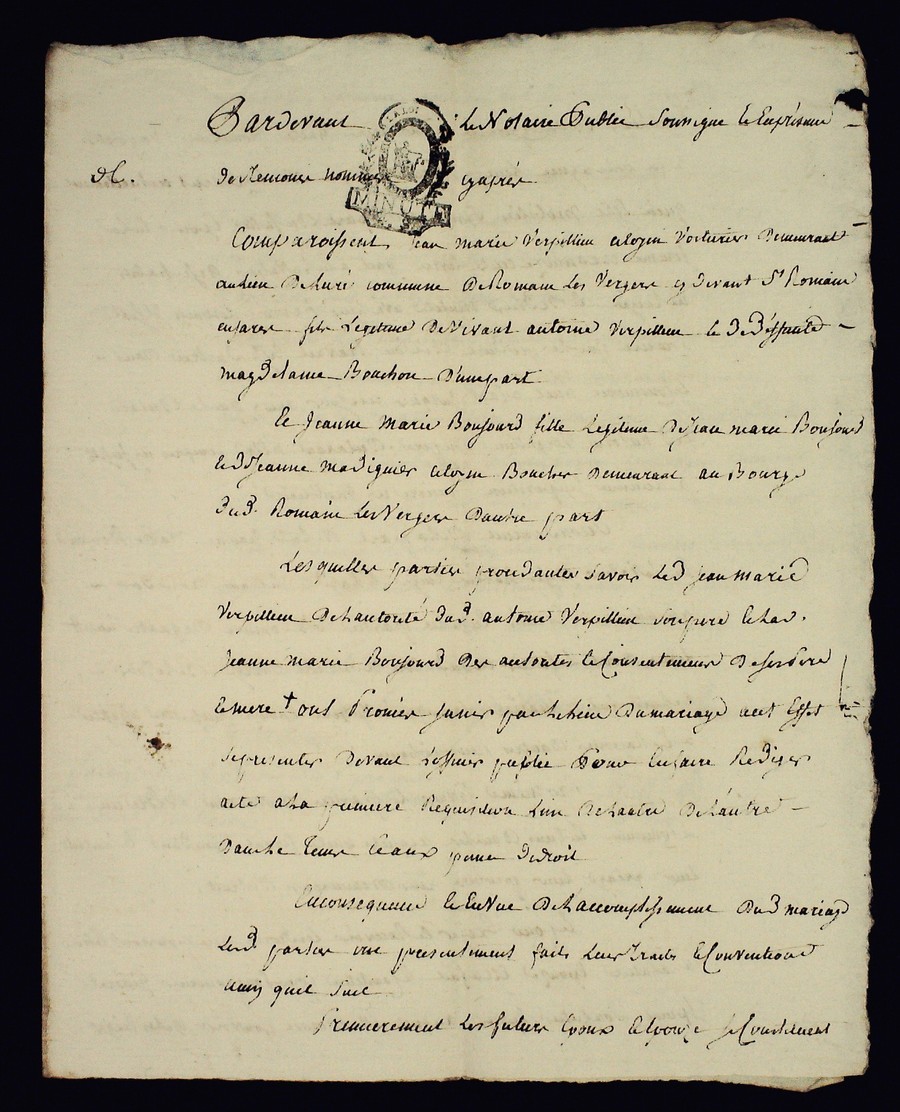 Pardevant le Notaire Public Soussigné et En présence
dC. de Temoins nommés cyaprès
MINUTE
Comparoissent jean marie Verpillieu citoyen Voiturier Demeurant
au lieu De luré commune De Romain Les Vergers cy Devant St Romain
en jarès fils Legitime De Vivant antoine Verpillieu et De Deffunte
magdelaine Bouchon D'une part
Et Jeanne Marie Boujourd fille Legitime De Jean marie Boujourd
et D Jeanne madignier citoyen Boucher Demeurant au Bourg
Dud. Romain Les Vergers Dautre part
Lesquelles parties procedantes savoir Led jean marie
Verpillieu De Lautorité Dud. antoine Verpillieu son pere et Lad.
jeanne marie Boujourd Des autorités et Consentement De ses Pere
et mere + ont Promis sunir par Le Lien Du mariage a cet Effet
se presenter Devant Lofficier public Pour En faire Rediger
acte a La premiere Requisition Lun De Lautre De Lautre
Dans Le Tems Et aux peine De Droit
En consequence et En Vue De Laccomplissement Dud mariage
Les d. parties ont presentement faits Leurs Traités et Conventions
ainsy quil suit
Premierement Les futurs Epoux et Epouse se Constituent